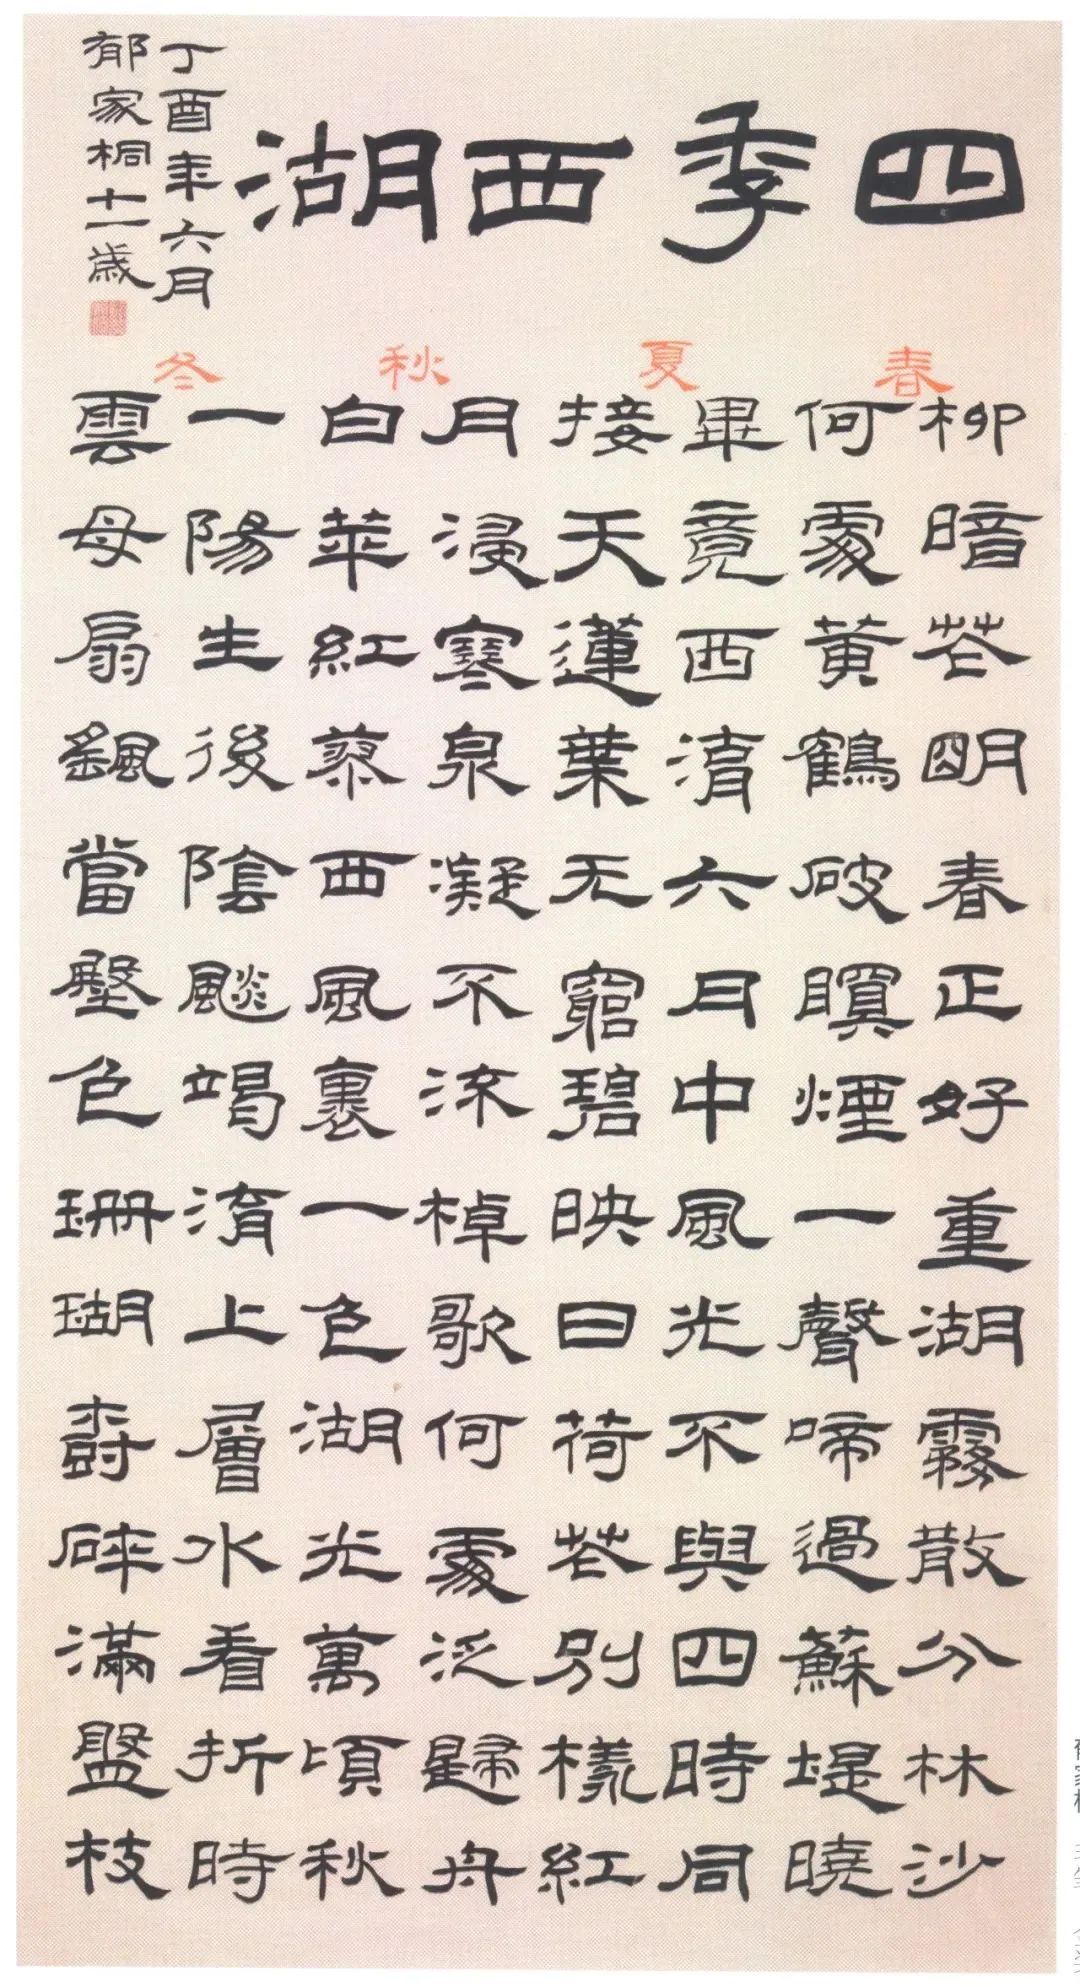 四季西湖
丁酉年六月
郁家桐十一歲
春
柳暗花明春正好重湖霧散分林沙
何處黃鶴破暝煙一聲啼過蘇堤曉
夏
畢竟西湖六月中風光不與四時同
接天蓮葉无窮碧映日荷花別樣紅
秋
月浸寒泉凝不流棹歌何處泛歸舟
白苹紅蓼西風裏一色湖光萬頃秋
冬
一陽生後陰飈竭湖上層水看折時
雲母扇颻當壂色珊瑚樹碎滿盤枝